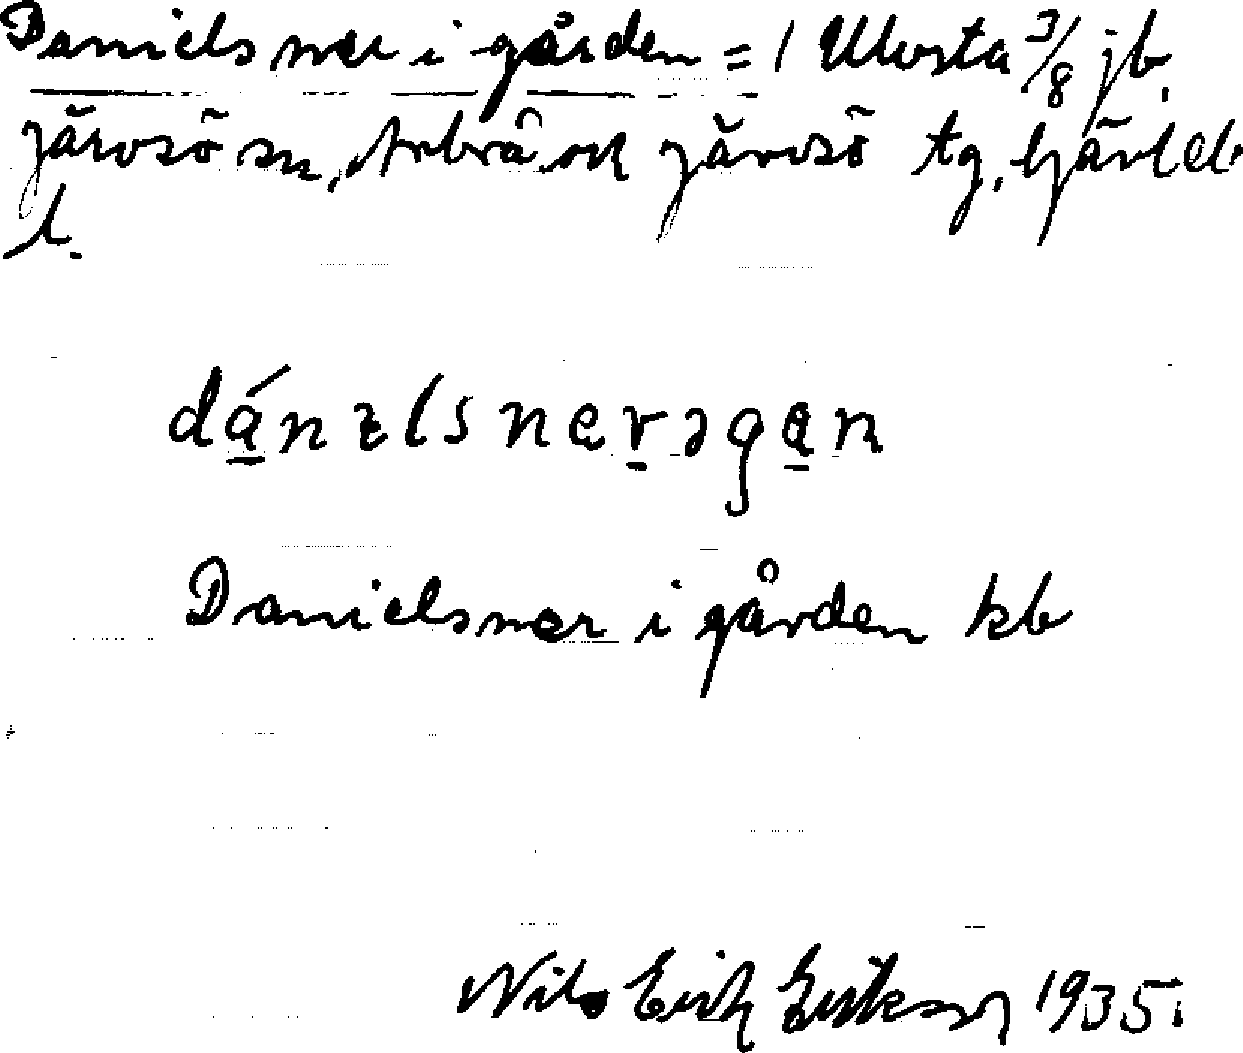 Daniels ner i gården = 1 Ulvsta 3/8 jb,
Järvsö sn, Arbrå och Järvsö tg,
l.
Danielsner i gården kb
Nils Erik Eriksson 1935.